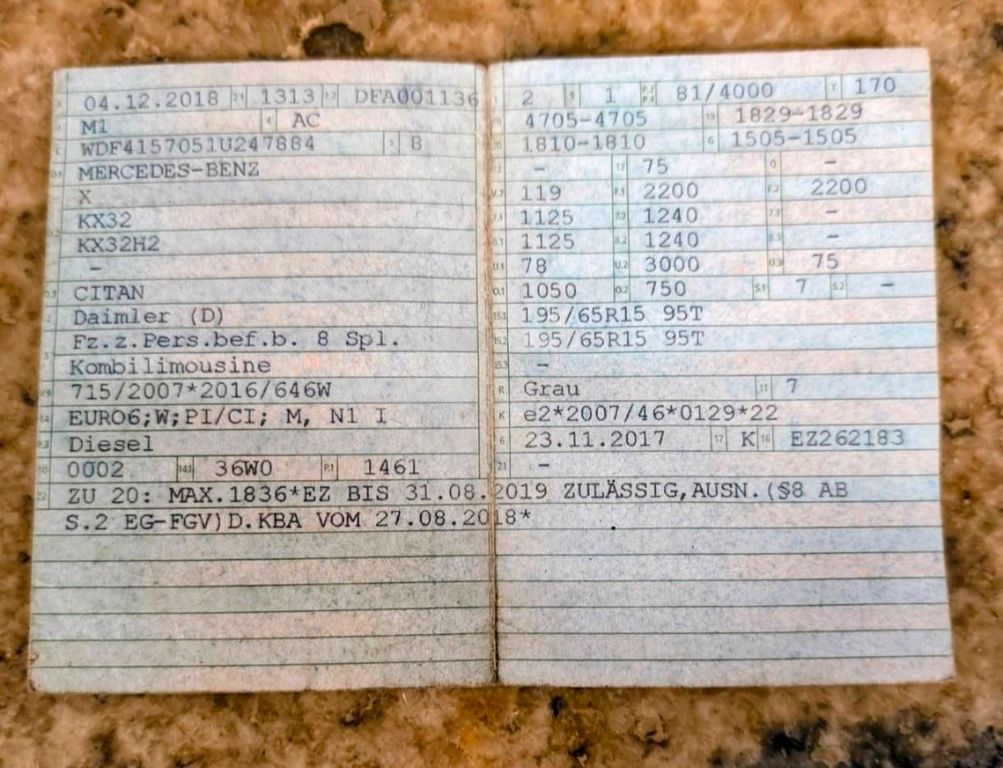 04.12.2018 1313 DFA001136
M1 AC
WDF4157051U247884 8
MERCEDES-BENZ
X
KX32
KX32H2
-
CITAN
Daimler (D)
Fz.z.Pers.bef.b. 8 Spl.
Kombilimousine
715/2007*2016/646W
EURO6;W;PI/CI; M, N1 I
Diesel
0002 36W0 1461
2 1 81/4000 170
4705-4705 1829-1829
1810-1810 1505-1505
- 75 -
119 2200 2200
1125 1240 -
1125 1240 -
78 3000 75
1050 750 7 -
195/65R15 95T
195/65R15 95T
-
Grau 7
e2*2007/46*0129*22
23.11.2017 K EZ262183
-
ZU 20: MAX.1836*EZ BIS 31.08.2019 ZULÄSSIG,AUSN.(§8 AB
S.2 EG-FGV)D.KBA VOM 27.08.2018*